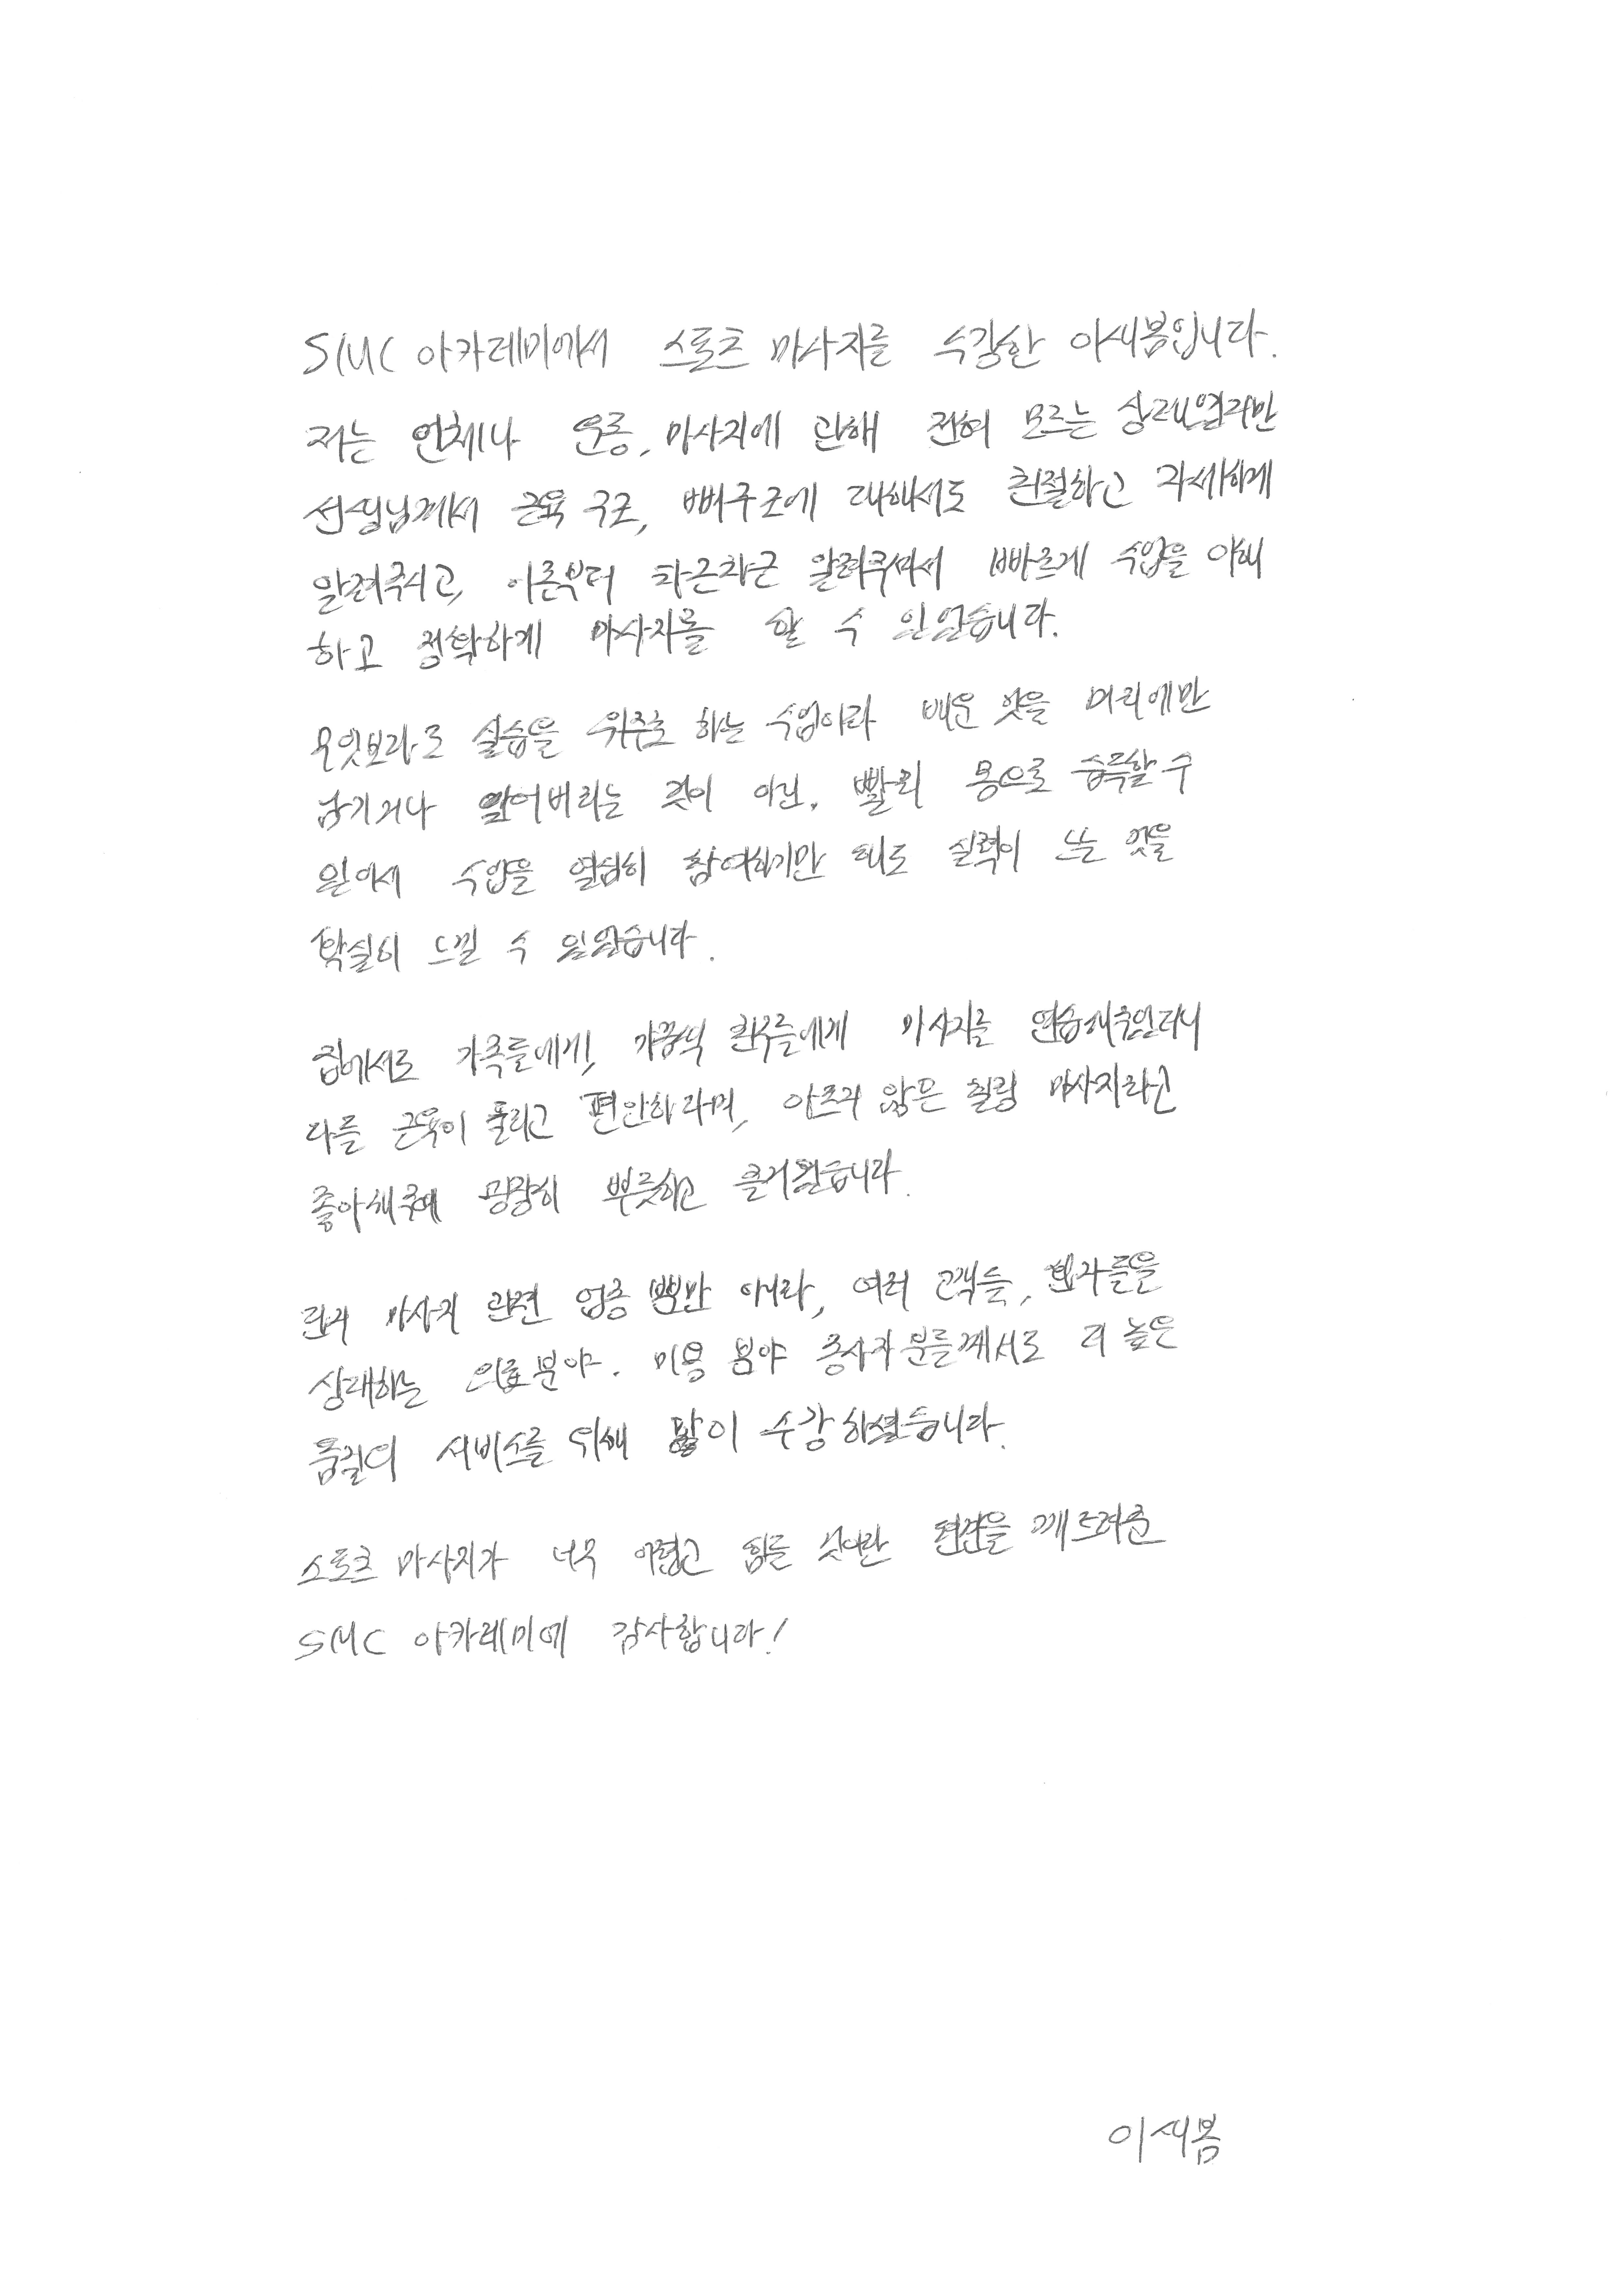 SMC 아카데미에서 스포츠 마사지를 수강한 이새봄입니다.
저는 인체나 운동, 마사지에 관해 전혀 모르는 상태였지만
선생님께서 근육 구조, 뼈구조에 대해서도 친절하고 자세하게
알려주시고, 이론부터 차근차근 알려주셔서 빠르게 수업을 이해
하고 정확하게 마사지를 할 수 있었습니다.
무엇보다도 실습을 위주로 하는 수업이라 배운 것을 머리에만
남기거나 잊어버리는 것이 아닌, 빨리 몸으로 습득할 수
있어서 수업을 열심히 참여하기만 해도 실력이 느는 것을
확실히 느낄 수 있었습니다.
집에서도 가족들에게, 가끔씩 친구들에게 마사지를 연습해주었더니
다들 근육이 풀리고 편안하다며, 아프지 않은 힐링 마사지라고
좋아해주어 굉장히 뿌듯하고 즐거웠습니다.
단지 마사지 관련 업종 뿐만 아니라, 여러 고객들, 환자들을
상대하는 의료분야. 미용 분야 종사자분들께서도 더 높은
품질의 서비스를 위해 많이 수강하셨습니다.
스포츠 마사지가 너무 어렵고 힘들 것이란 편견을 깨트려준
SMC 아카데미에 감사합니다!
이새봄